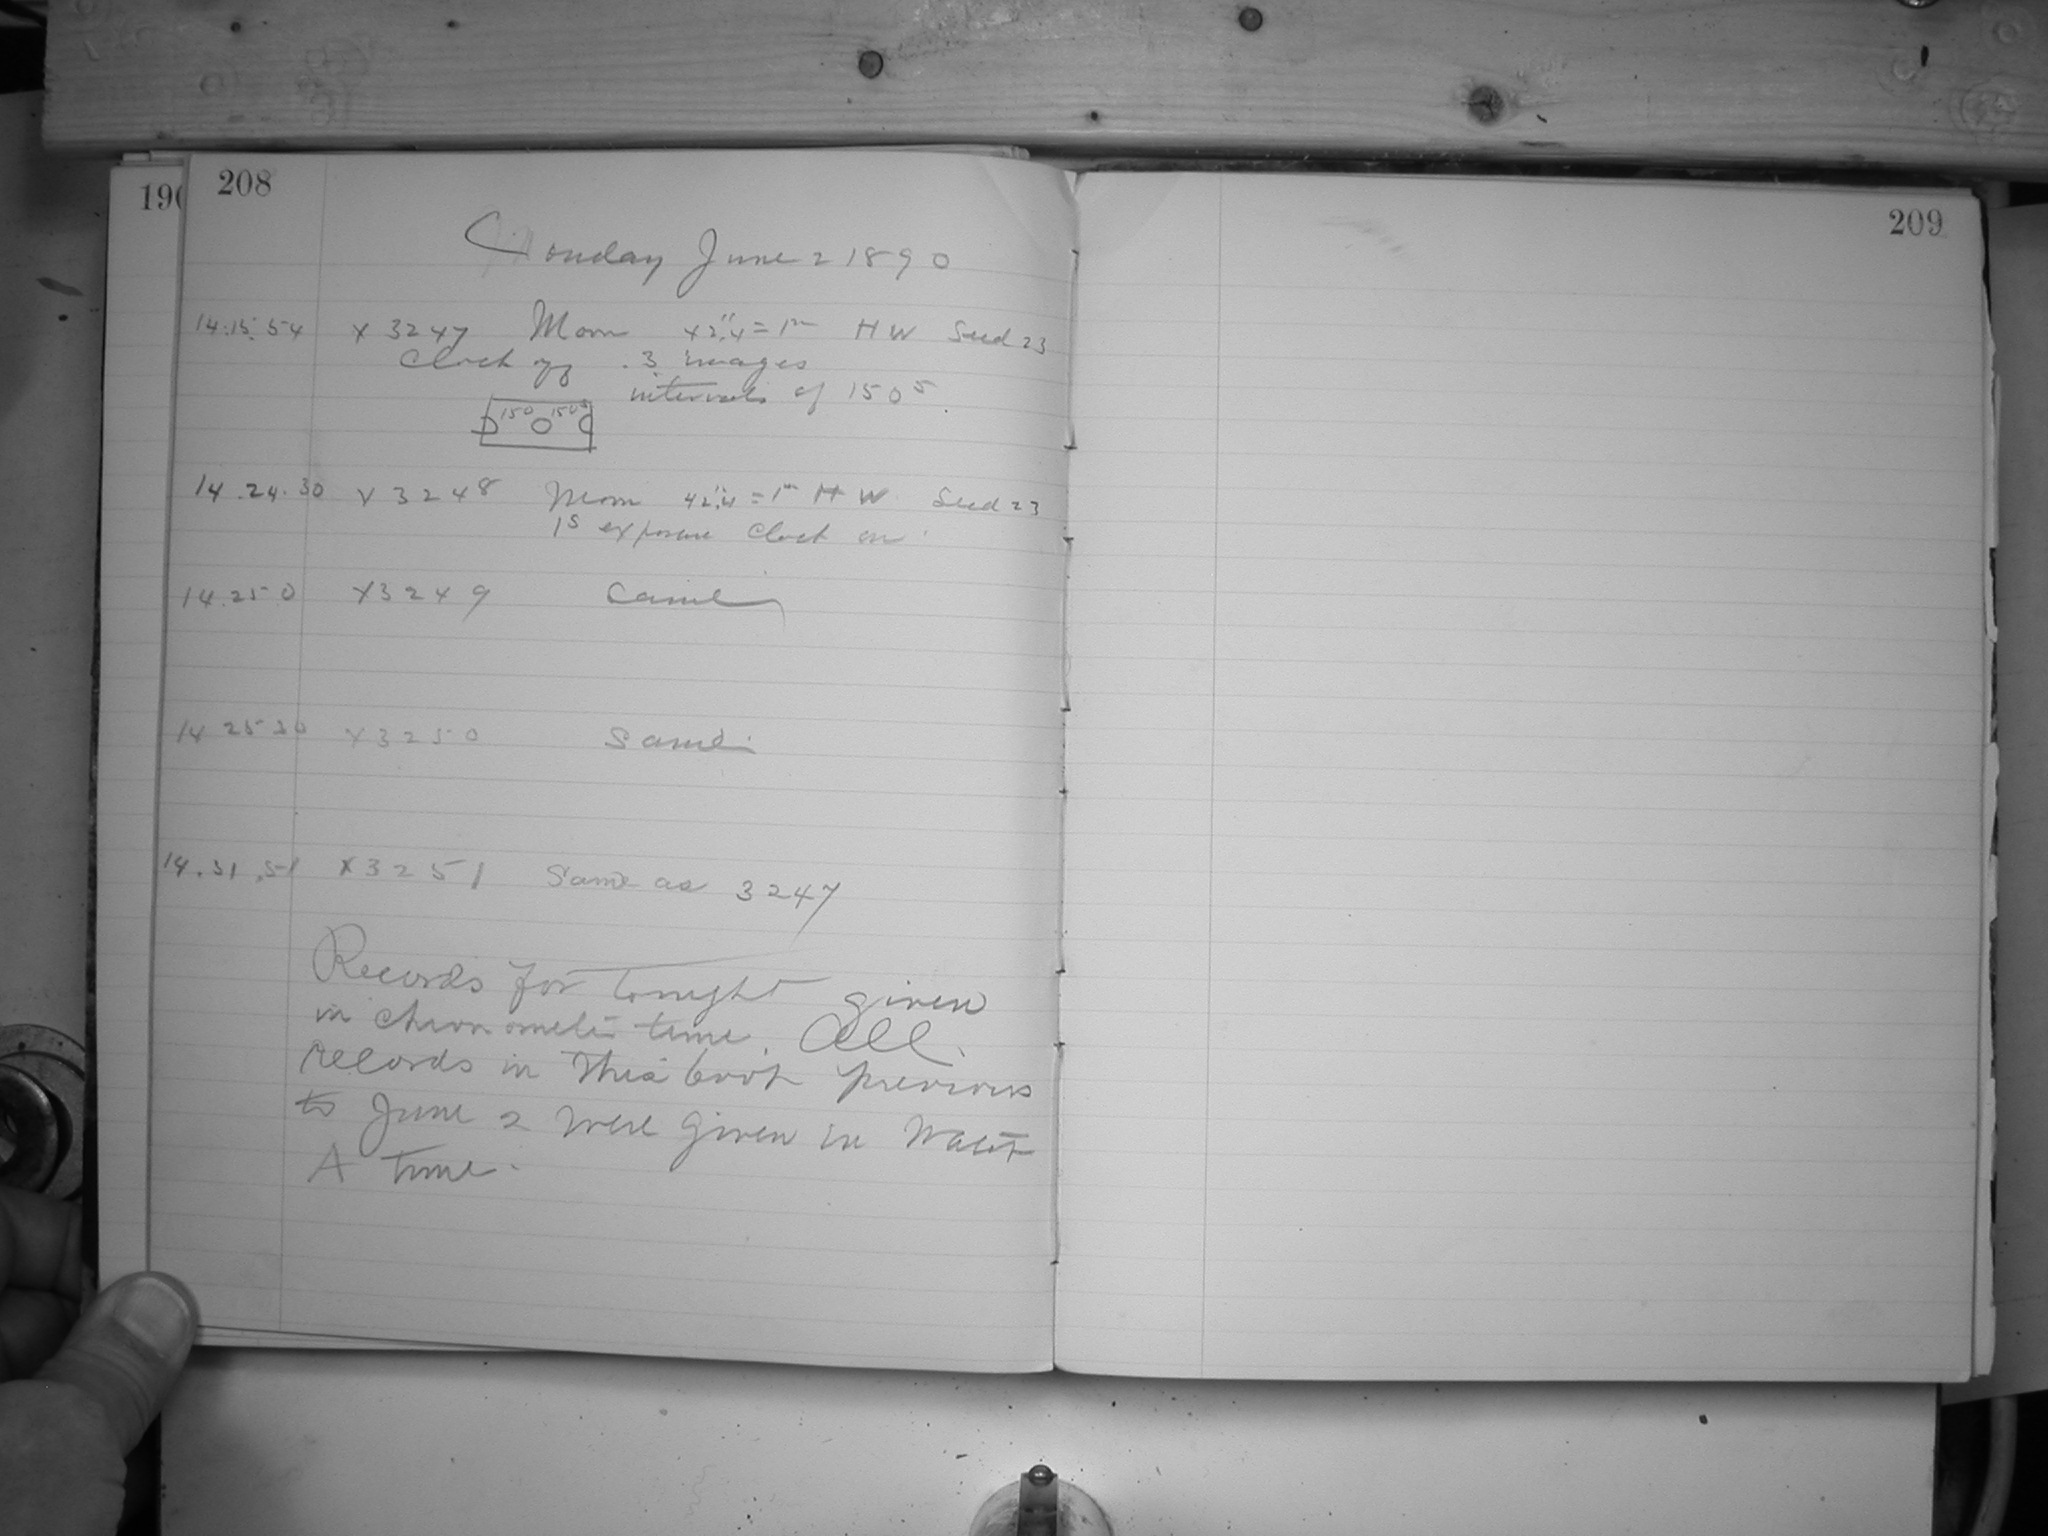 190 208
209
Monday June 2 1890
14.15.54 X 3247 Moon 42".4 = 1m HW Seed 23
Clock off. 3 images
intervals of 150s.
150 150s
14.24.30 X 3248 Moon 42".4 = 1m HW Seed 23
1s exposure Clock on.
14.25.0 X3249 Same
14 25 30 X3250 Same
14.31.51 X3251 Same as 3247
Records for tonight given
in chronometer time. All
records in this book previous
to June 2 were given in Watch
A time.